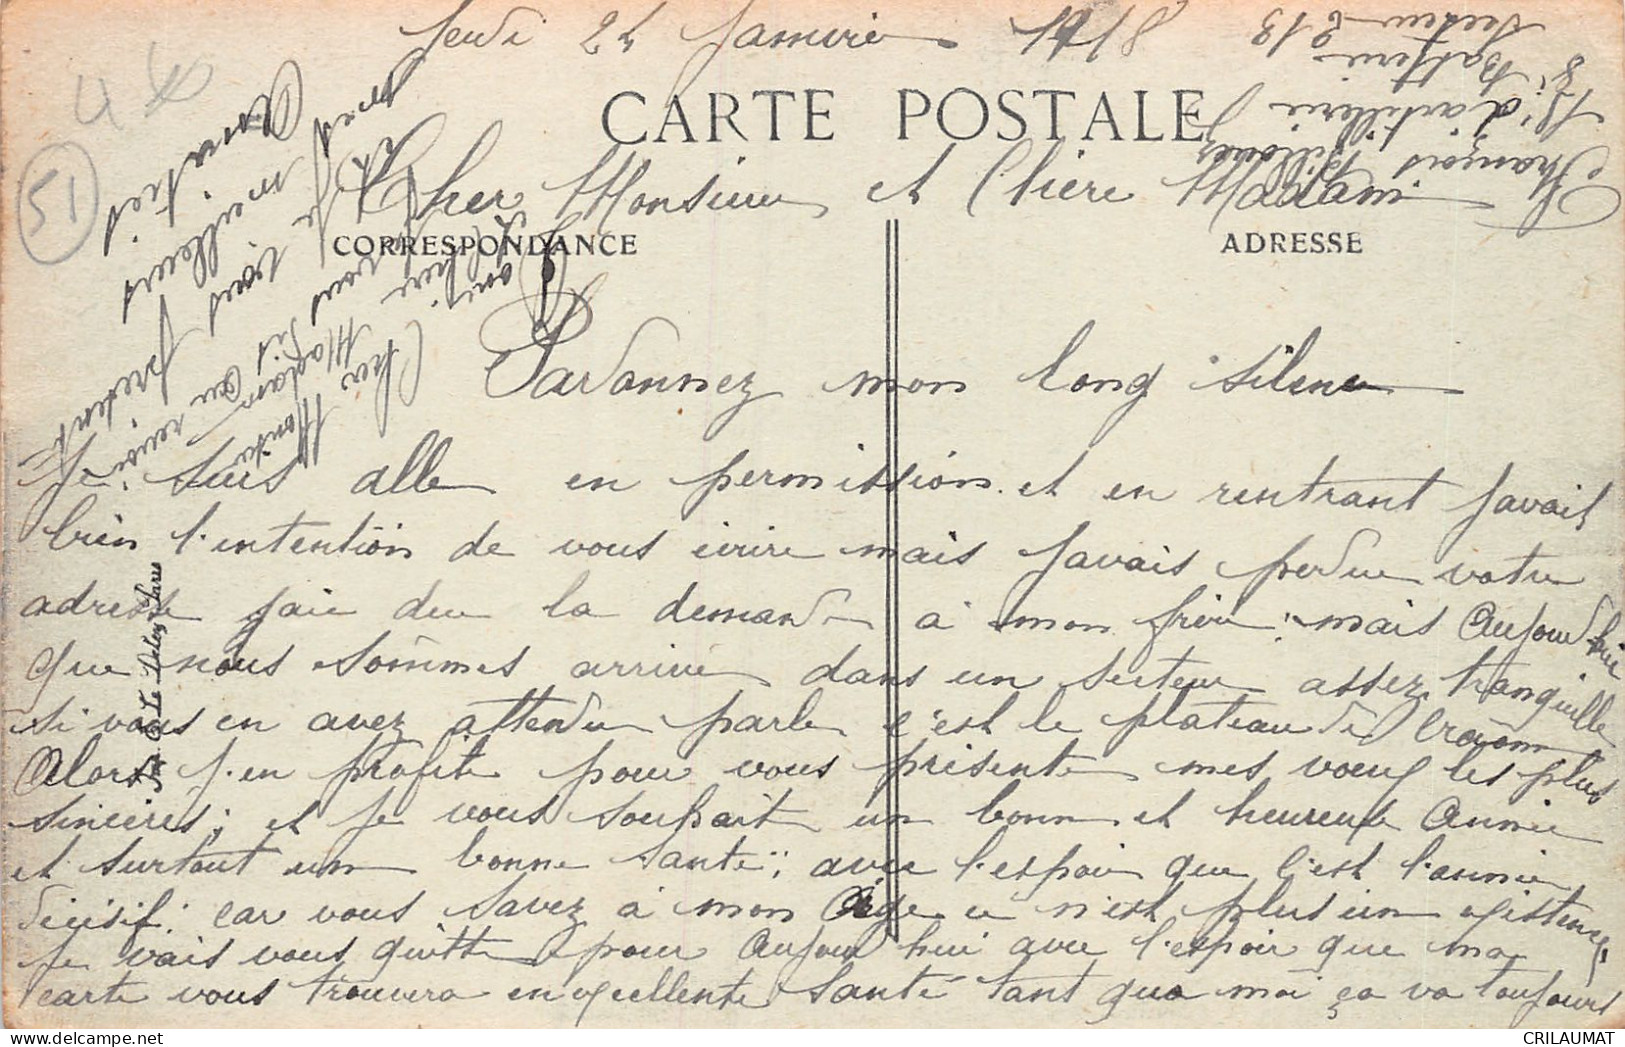 Jeudi 24 Janvier 1918
CARTE POSTALE
Cher Monsieur et Chère Madame
CORRESPONDANCE
ADRESSE
Pardonnez mon long silence
Je suis alle en permission et en rentrant javait
bien l'intention de vous ecrire mais javais perdue votre
adresse jaie due la demande à mon frère; mais Aujourd'hui
que nous sommes arrivé dans un secteur assez tranquille
si vous en avez attendu parle c'est le plateau de Craonne
Alors j'en profite pour vous présente mes voeux les plus
sincères; et je vous souhait un bonne et heureuse Année
et surtout un bonne santé; avec l'espoir que c'est l'année
décisif; car vous savez à mon Age ce n'est plus un existence,
Je vais vous quitte pour Aujourd'hui avec l'espoir que ma
carte vous trouvera en excellente santé tant qua moi ça va toujours
Imp. Le Deley, Paris
Recevez
mes meilleurs
Je vous
Cher Monsieur
et Chère
au revoir
François
15e d'artillerie
8e Batterie
Secteur 213
51
4
CRILAUMAT